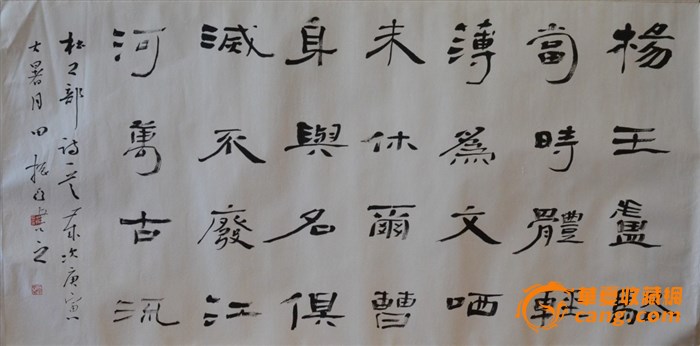 楊王盧駱
當時體輕
薄為文哂
未休爾曹
身與名俱
滅不廢江
河萬古流
杜工部詩一首歲次庚寅
大暑月田振書之
華夏收藏網